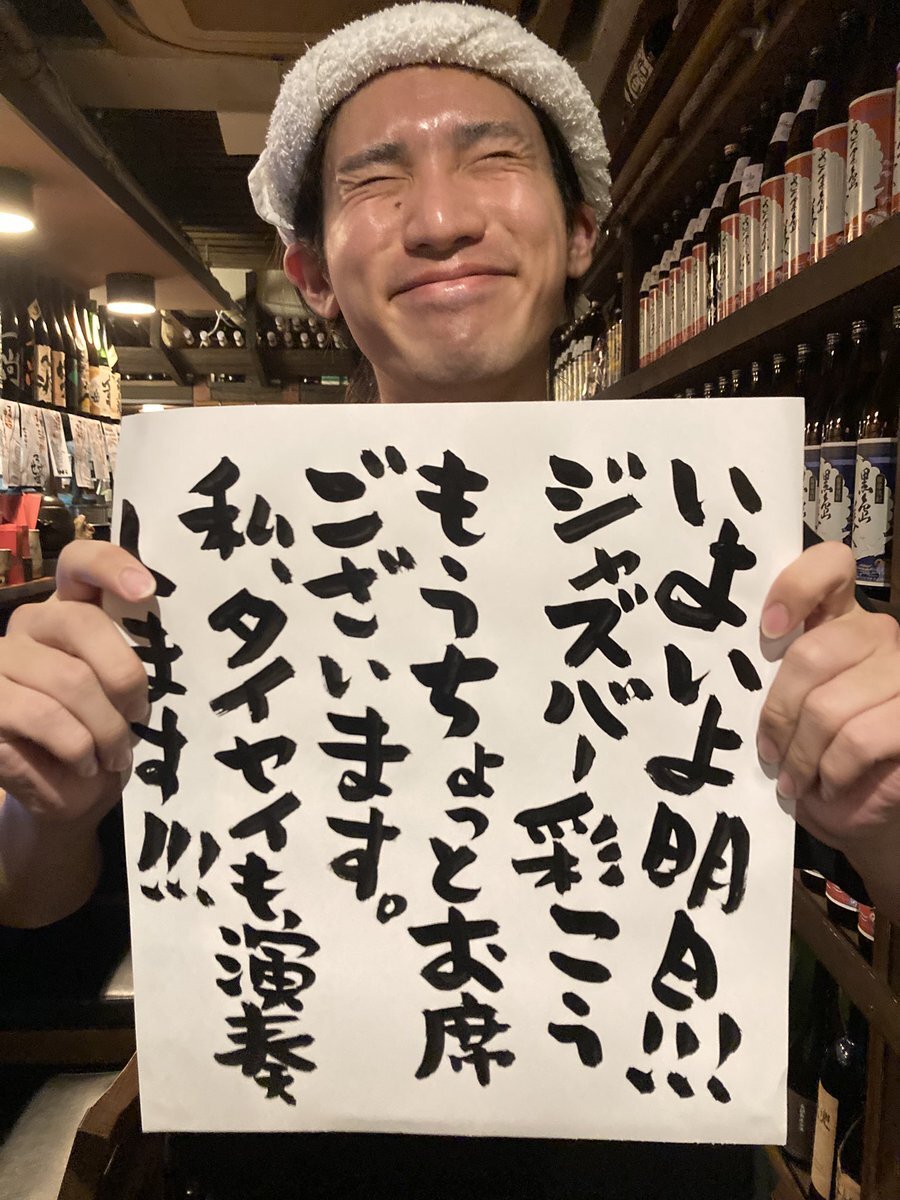 いよいよ明日!!!
ジャズバー彩こう
もうちょっとお席
ございます。
私、タイセイも演奏
します!!!
黒霧島